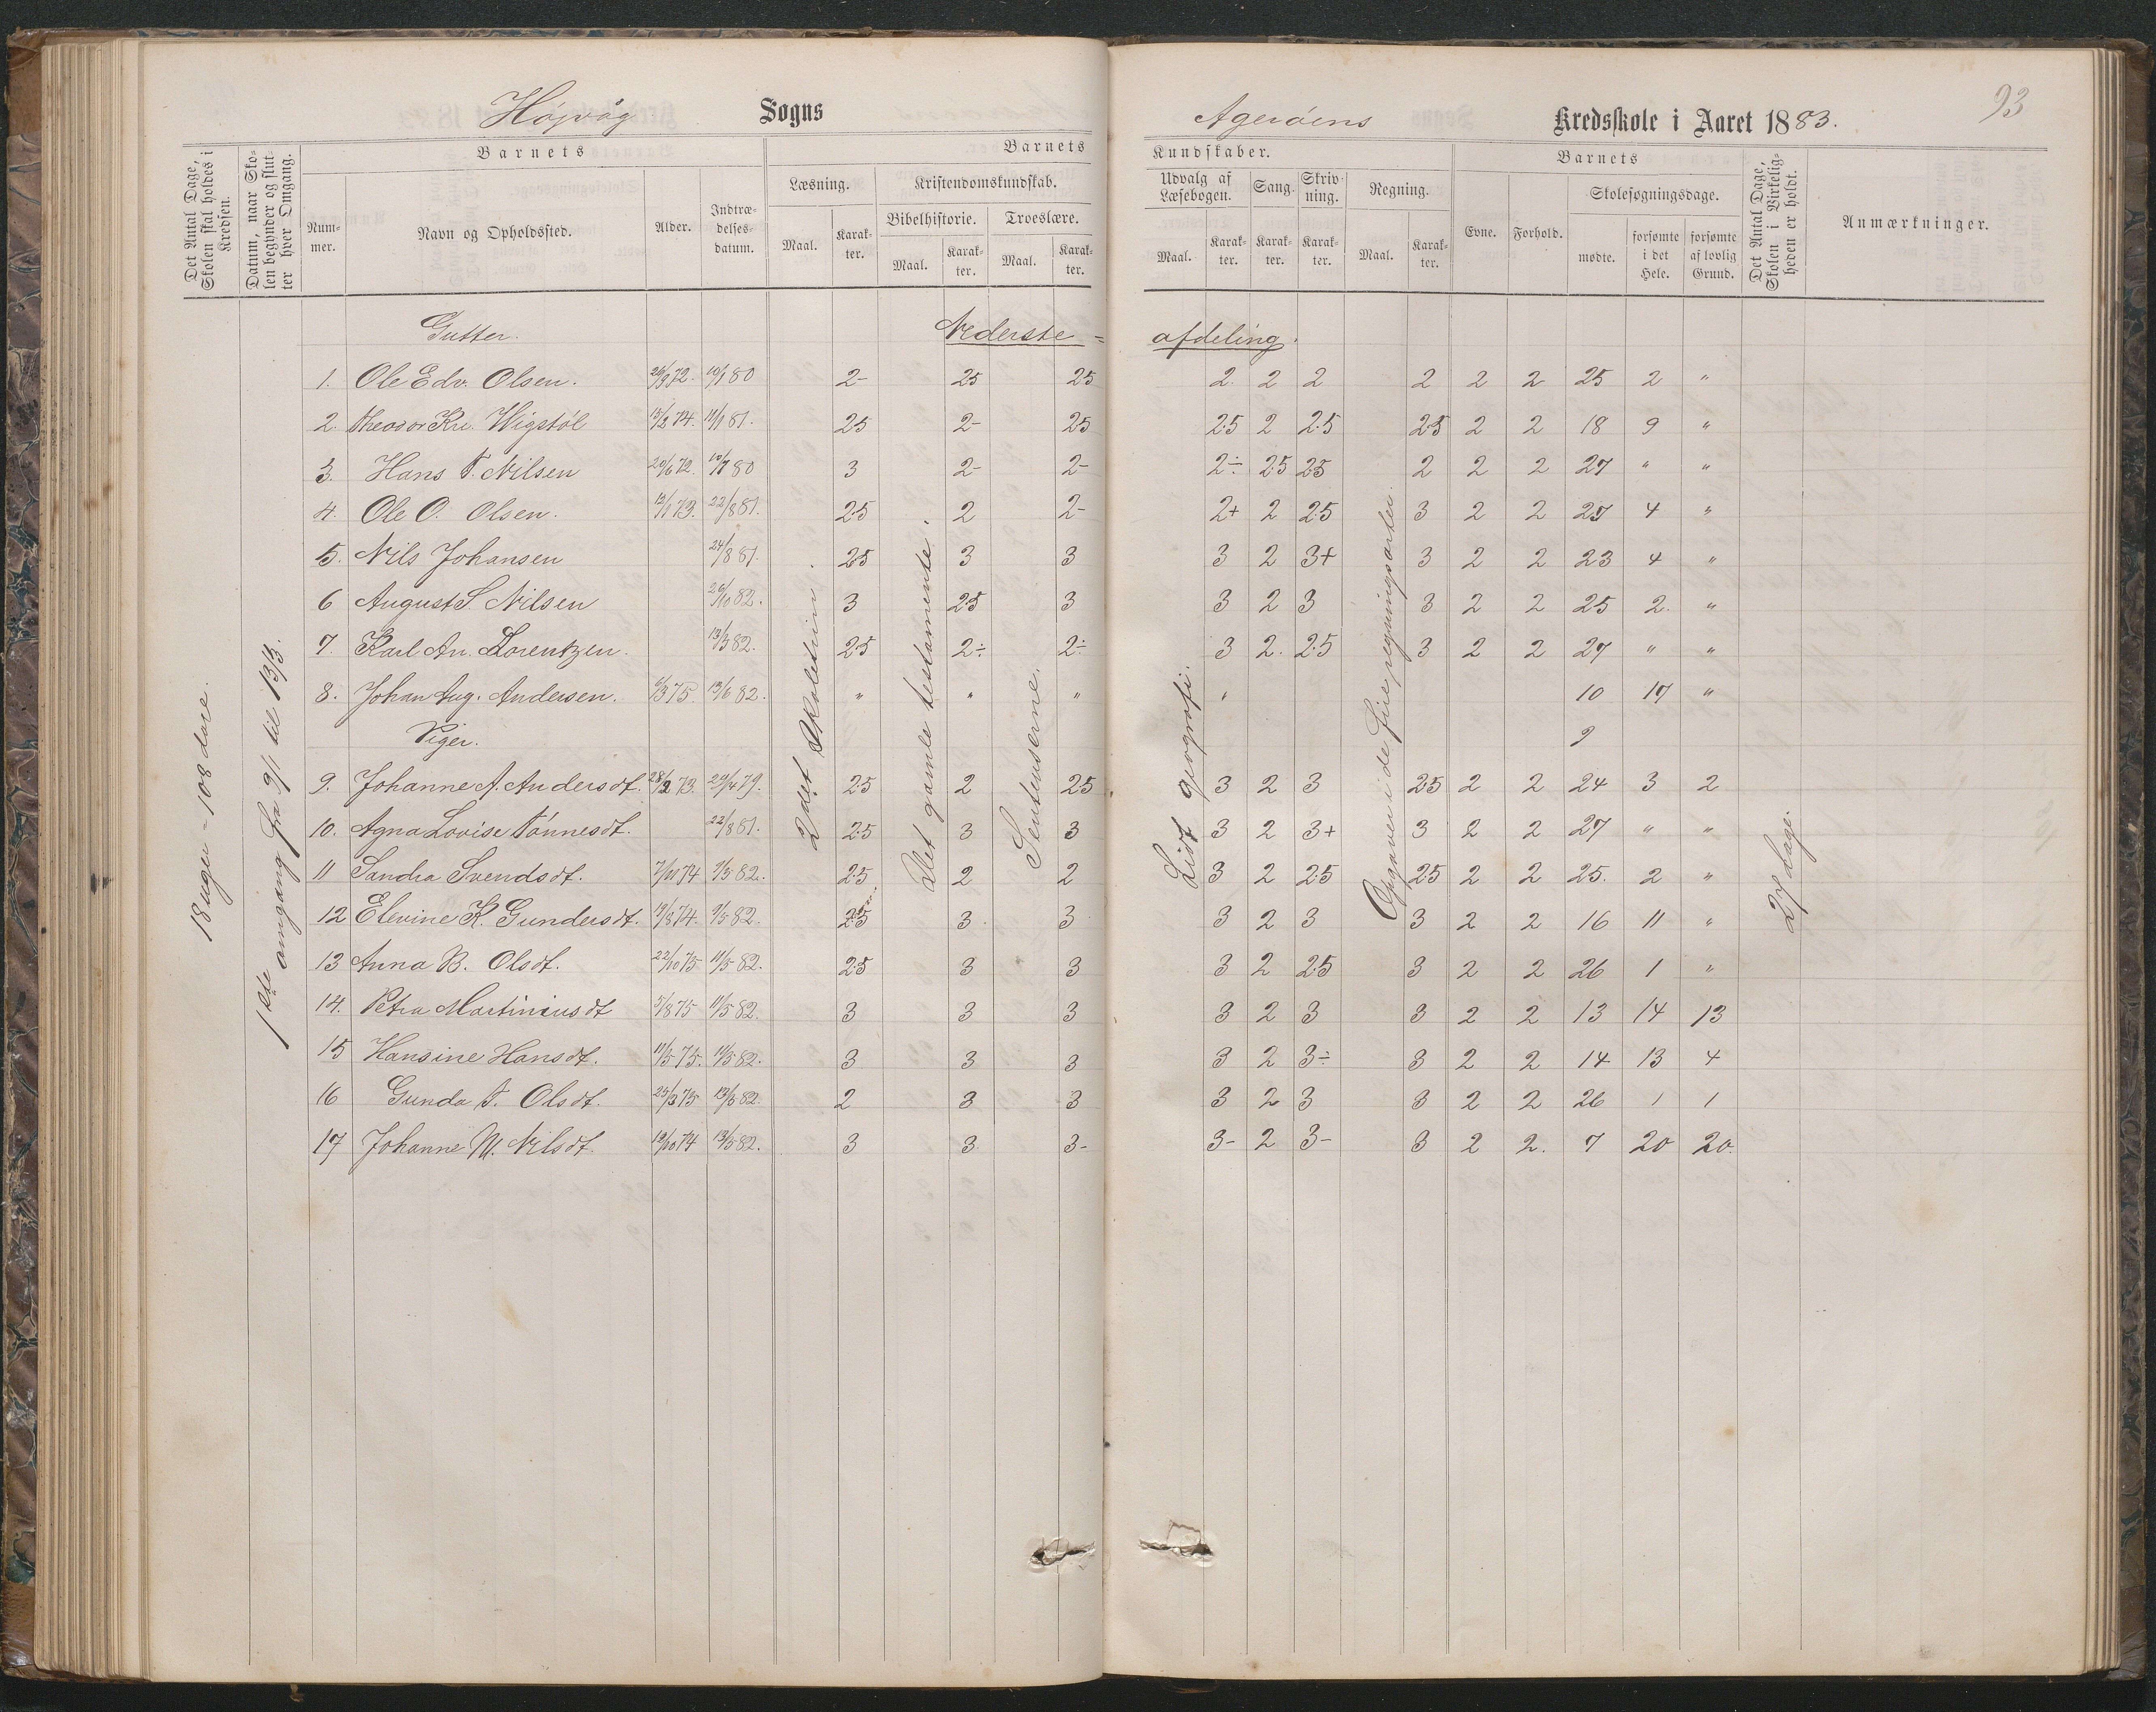 Højvåg Sogns
Agerøens Kredsskole i Aaret 1883.
93
Det Antal Dage, Skolen skal holdes i Kredsen.
Datum, naar Skolen begynder og slutter hver Omgang.
Barnets
Nummer.
Navn og Opholdssted.
Alder.
Indtrædelsesdatum.
Barnets
Læsning.
Maal.
Karakter.
Kristendomskundskab.
Bibelhistorie.
Maal.
Karakter.
Troeslære.
Maal.
Karakter.
Kundskaber.
Udvalg af Læsebogen.
Maal.
Karakter.
Sang.
Karakter.
Skrivning.
Karakter.
Regning.
Maal.
Karakter.
Barnets
Evne.
Forhold.
Skolesøgningsdage.
mødte.
forsømte i det Hele.
forsømte af lovlig Grund.
Det Antal Dage, Skolen i Virkeligheden er holdt.
Anmærkninger.
18 uger = 108 dage.
1ste omgang fra 9/1 til 13/3.
2det Skoletrin.
Det gamle testamente.
Sentenserne.
Lidt geografi.
Opgaver i de fire regningsarter.
27 dage.
Gutter. Nederste = afdeling.
1. Ole Edv. Olsen. 26/9 72. 10/1 80 2- 2.5 2.5 2. 2 2 2 2 2 25 2 "
2. Theodor Kr. Wigstøl 13/2 74. 11/1 81. 2.5 2- 2.5 2.5 2 2.5 2.5 2 2 18 9 "
3. Hans T. Nilsen 20/6 72. 10/1 80 3 2- 2- 2÷ 2.5 2.5 2 2 2 27 " "
4. Ole O. Olsen. 12/1 73. 22/8 81. 2.5 2 2- 2+ 2 2.5 3 2 2 23 4 "
5. Nils Johansen 24/8 81. 2.5 3 3 3 2 3+ 3 2 2 23 4 "
6 August S Nilsen 26/10 82. 3 2.5 3 3 2 3 3 2 2 25 2. "
7. Karl An. Lorentzen. 13/3 82. 2.5 2÷ 2÷ 3 2. 2.5 3 2 2 27 " "
8. Johan Aug. Andersen. 6/3 75 13/6 82. " " " " 10 17 "
Piger. 9
9. Johanne A. Andersdt. 28/2 73. 29/4 79. 2.5 2 2.5 3 2 3 2.5 2 2 24 3 2
10. Agna Lovise Tønnesdt. 22/8 81. 2.5 3 3 3 2 3+ 3 2 2 27 " "
11 Sandra Svendsdt. 7/10 74 9/5 82. 2.5 2 2 3 2 2.5 2.5 2 2 25. 2 "
12 Elevine K. Gundersdt. 19/8 74. 9/5 82. 2.5 3. 3 3 2 3 3 2 2 16 11 "
13 Anna B. Olsdt. 22/10 75 11/5 82. 2.5 3 3 3 2 2.5 3 2 2 26 1 "
14. Petra Martiniusdt 5/8 75 11/5 82. 3 3 3 3 2 3 3 2 2 13 14 13
15 Hansine Hansdt. 11/5 75. 11/5 82. 3 3 3 3 2 3÷ 3 2 2 14 13 4
16 Gunda T. Olsdt. 25/3 75 13/3 82. 2 3 3 3 2 3 3 2 2 26 1 1
17 Johanne M. Nilsdt. 19/10 74 13/5 82. 3 3 3- 3- 2 3- 3 2 2. 7 20 20.